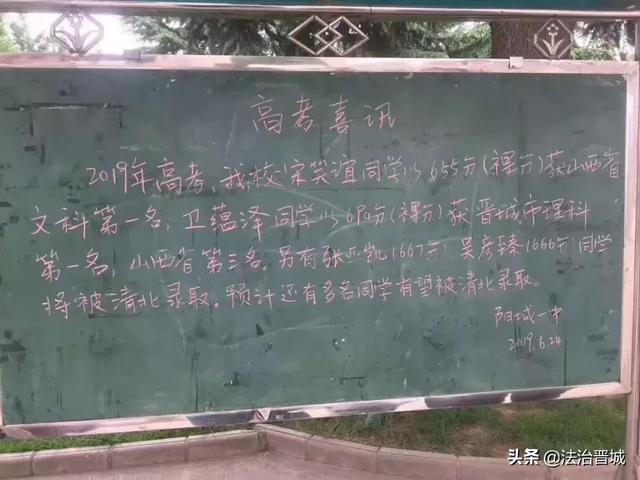 高考喜讯
2019年高考,我校宋笑谊同学以655分(裸分)获山西省
文科第一名,卫蕴泽同学以690分(裸分)获晋城市理科
第一名,山西省第三名,另有张亚凯(667分)吴彦臻(666分)同学
将被清北录取。预计还有多名同学有望被清北录取。
阳城一中
2019.6.24
头条 @法治晋城